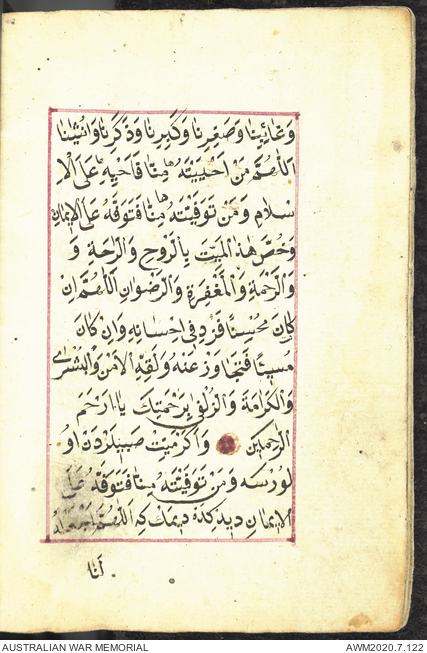 وَغَائِبِنَا وَصَغِيرِنَا وَكَبِيرِنَا وَذَكَرِنَا وَاُنْثٰينَا
اَللّٰهُمَّ مَنْ اَحْيَيْتَهُ مِنَّا فَاَحْيِهِ عَلَى الْاِ
سْلَامِ وَمَنْ تَوَفَّيْتَهُ مِنَّا فَتَوَفَّهُ عَلَى الْاِيمَانِ
وَخُصَّ هٰذَا الْمَيِّتَ بِالرَّوْحِ وَالرَّاحَةِ وَ
وَالرَّحْمَةِ وَالْمَغْفِرَةِ وَالرِّضْوَانِ اَللّٰهُمَّ اِنْ
كَانَ مُحْسِنًا فَزِدْ فِى اِحْسَانِهِ وَاِنْ كَانَ
مُسِيئًا فَتَجَاوَزْ عَنْهُ وَلَقِّهِ الْاَمْنَ وَالْبُشْرٰى
وَالْكَرَامَةَ وَالزُّلْفٰى بِرَحْمَتِكَ يَا اَرْحَمَ
الرَّحِمِينَ وَاكَرْ مَيِّتْ صَبِيلَرْدَنْ اَوُ
لُورْسَه وَمَنْ تَوَفَّيْتَهُ مِنَّا فَتَوَفَّهُ عَلَى
الْاِيمَانِ دِيدِكْدَه دِيمَكْ كِه اَللّٰهُمَّ اجْعَلْهُ
لَنَا
AUSTRALIAN WAR MEMORIAL
AWM2020.7.122